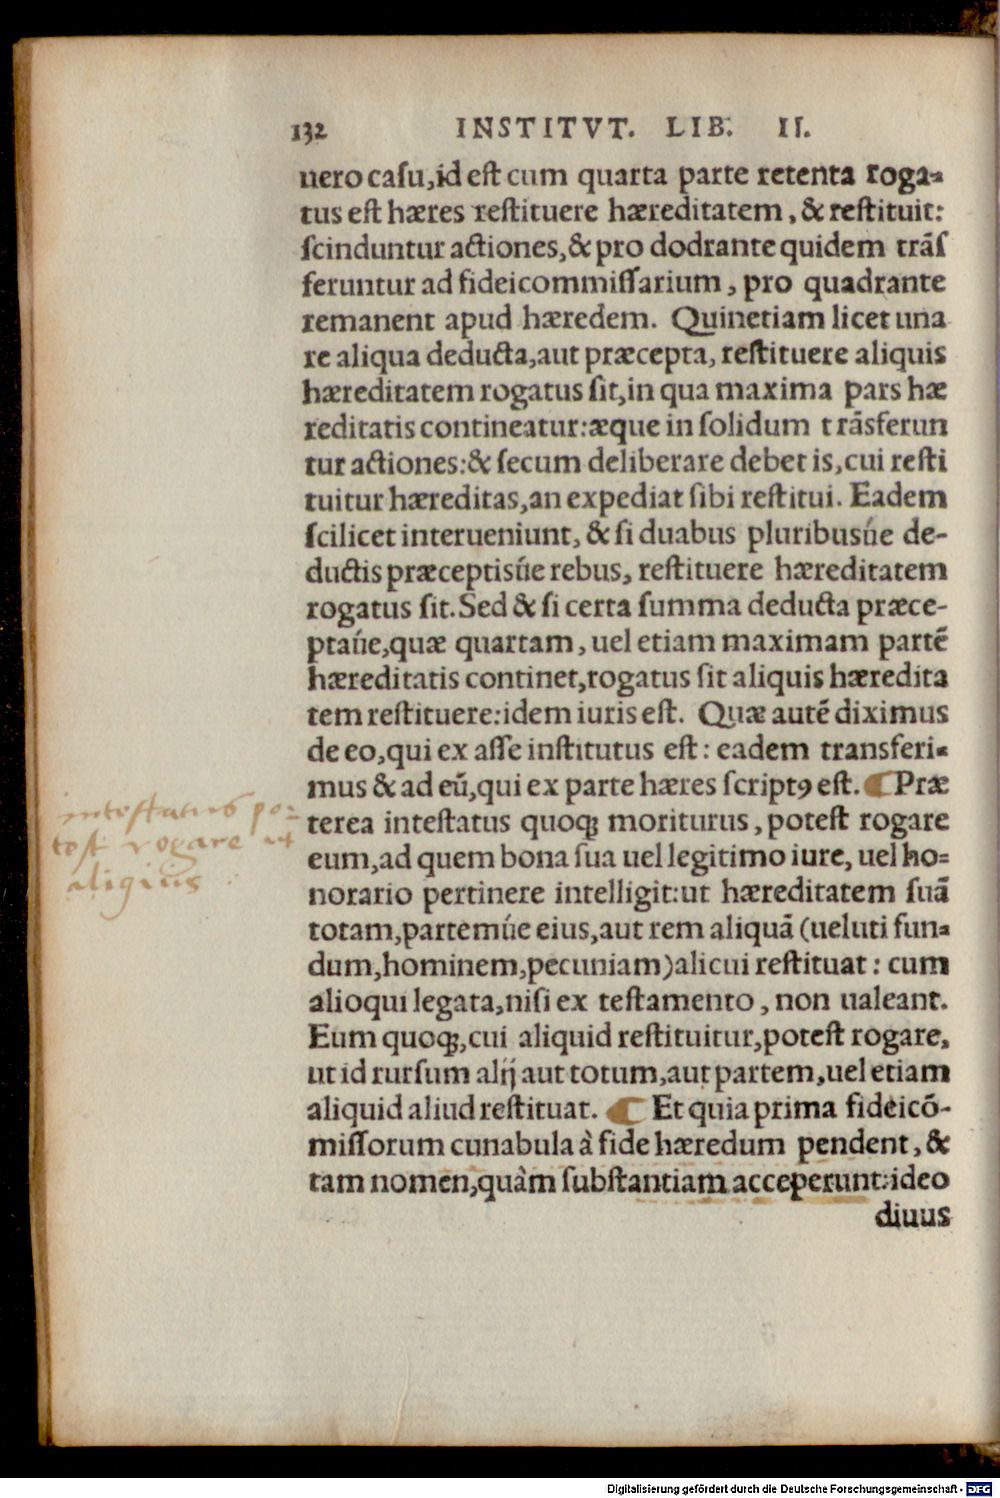 132 INSTITVT. LIB. II.
uero casu, id est cum quarta parte retenta roga-
tus est hæres restituere hæreditatem, & restituit:
scinduntur actiones, & pro dodrante quidem trās
feruntur ad fideicommissarium, pro quadrante
remanent apud hæredem. Quinetiam licet una
re aliqua deducta, aut præcepta, restituere aliquis
hæreditatem rogatus sit, in qua maxima pars hæ
reditatis contineatur: æque in solidum trāsferun
tur actiones: & secum deliberare debet is, cui resti
tuitur hæreditas, an expediat sibi restitui. Eadem
scilicet interueniunt, & si duabus pluribusúe de-
ductis præceptisúe rebus, restituere hæreditatem
rogatus sit. Sed & si certa summa deducta præce-
ptaúe, quæ quartam, uel etiam maximam partē
hæreditatis continet, rogatus sit aliquis hæredita
tem restituere: idem iuris est. Quæ autē diximus
de eo, qui ex asse institutus est: eadem transferi-
mus & ad eū, qui ex parte hæres scriptꝰ est. ¶ Præ
terea intestatus quoq; moriturus, potest rogare
eum, ad quem bona sua uel legitimo iure, uel ho-
norario pertinere intelligit: ut hæreditatem suā
totam, partemúe eius, aut rem aliquā (ueluti fun-
dum, hominem, pecuniam) alicui restituat: cum
alioqui legata, nisi ex testamento, non ualeant.
Eum quoq;, cui aliquid restituitur, potest rogare,
ut id rursum alij aut totum, aut partem, uel etiam
aliquid aliud restituat. ¶ Et quia prima fideicō-
missorum cunabula à fide hæredum pendent, &
tam nomen, quàm substantiam acceperunt: ideo
diuus
intestatus po-
test rogare ut
Digitalisierung gefördert durch die Deutsche Forschungsgemeinschaft - DFG